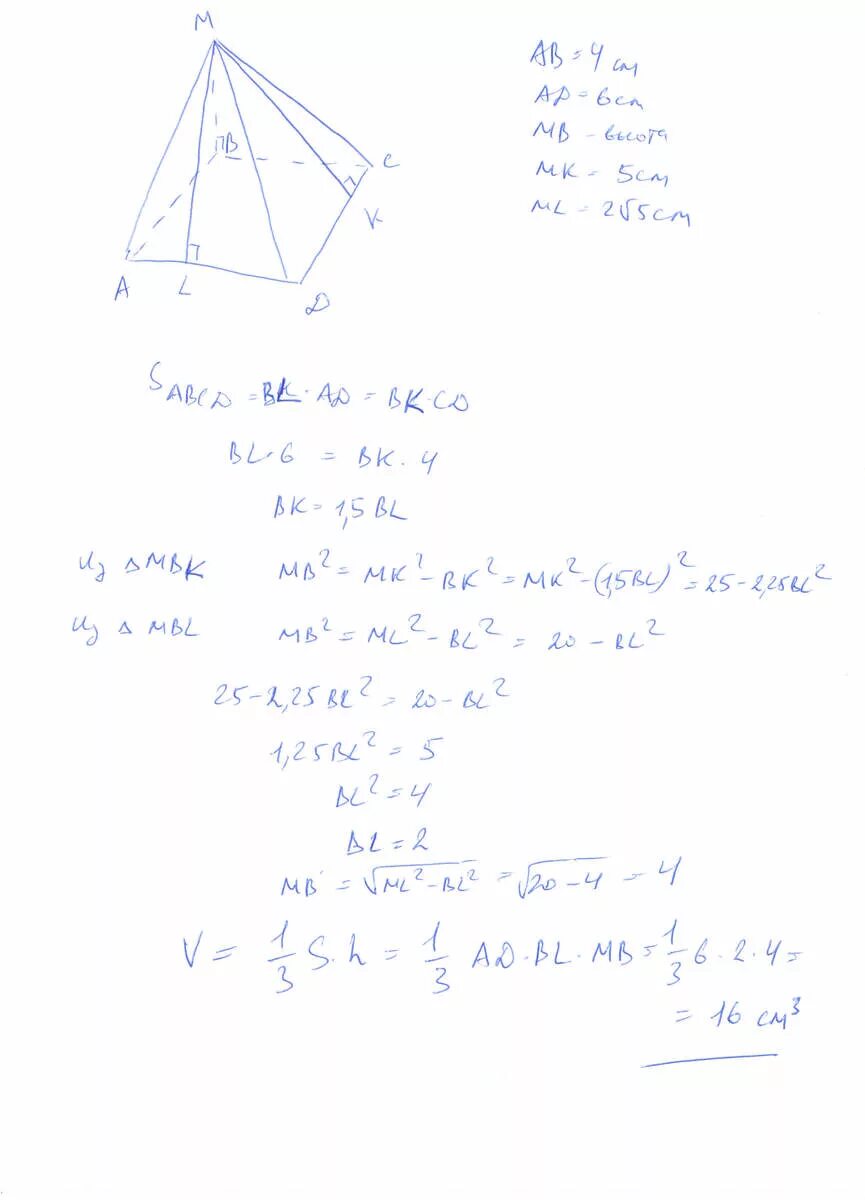 M
B
C
K
A
L
D
AB = 4 см
AD = 6 см
MB - высота
MK = 5 см
ML = 2√5 см
S_ABCD = BL · AD = BK · CD
BL · 6 = BK · 4
BK = 1,5 BL
Из ΔMBK MB² = MK² - BK² = MK² - (1,5BL)² = 25 - 2,25BL²
Из ΔMBL MB² = ML² - BL² = 20 - BL²
25 - 2,25BL² = 20 - BL²
1,25BL² = 5
BL² = 4
BL = 2
MB = √(ML² - BL²) = √(20 - 4) = 4
V = 1/3 S · h = 1/3 AD · BL · MB = 1/3 6 · 2 · 4 =
= 16 см³